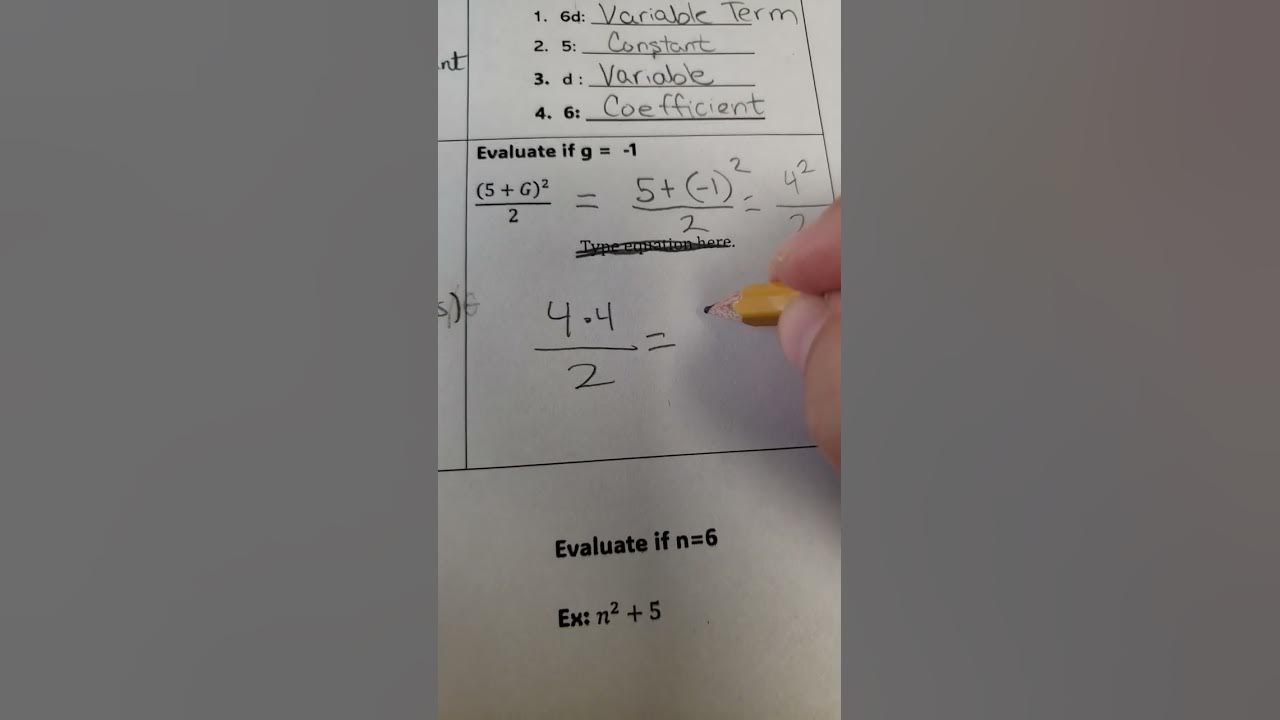 1. 6d: Variable Term
2. 5: Constant
nt
3. d : Variable
4. 6: Coefficient
Evaluate if g = -1
(5 + G)² / 2 = 5 + (-1)² / 2 = 4² / 2
Type equation here.
s)
4 · 4 / 2 =
Evaluate if n=6
Ex: n² + 5